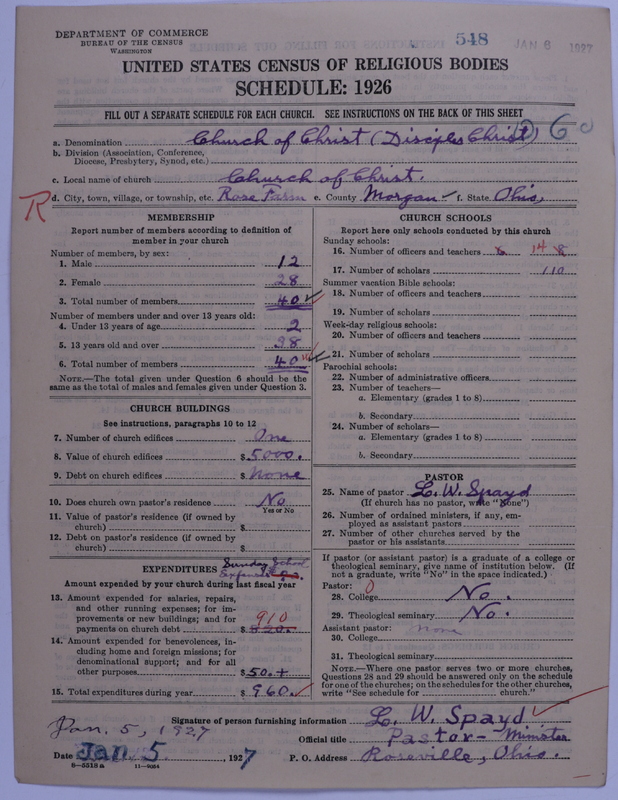 DEPARTMENT OF COMMERCE
BUREAU OF THE CENSUS
WASHINGTON
548
JAN 6 1927
UNITED STATES CENSUS OF RELIGIOUS BODIES
SCHEDULE: 1926
FILL OUT A SEPARATE SCHEDULE FOR EACH CHURCH. SEE INSTRUCTIONS ON THE BACK OF THIS SHEET
a. Denomination Church of Christ (Disciples Christ) 60
b. Division (Association, Conference,
Diocese, Presbytery, Synod, etc.)
c. Local name of church Church of Christ.
R d. City, town, village, or township, etc. Rose Farm e. County Morgan f. State Ohio.
MEMBERSHIP
Report number of members according to definition of
member in your church
Number of members, by sex:
1. Male 12
2. Female 28
3. Total number of members 40
Number of members under and over 13 years old:
4. Under 13 years of age 2
5. 13 years old and over 38
6. Total number of members 40
NOTE.—The total given under Question 6 should be the
same as the total of males and females given under Question 3.
CHURCH BUILDINGS
See instructions, paragraphs 10 to 12
7. Number of church edifices One
8. Value of church edifices $ 5000.
9. Debt on church edifices $ None
10. Does church own pastor's residence No
Yes or No
11. Value of pastor's residence (if owned by
church) $
12. Debt on pastor's residence (if owned by
church) $
EXPENDITURES Sunday School
Expenses
Amount expended by your church during last fiscal year
13. Amount expended for salaries, repairs,
and other running expenses; for im-
provements or new buildings; and for 910
payments on church debt $ 820.
14. Amount expended for benevolences, in-
cluding home and foreign missions; for
denominational support; and for all
other purposes $ 50.+
15. Total expenditures during year $ 960.
CHURCH SCHOOLS
Report here only schools conducted by this church
Sunday schools:
16. Number of officers and teachers 6 14 8
17. Number of scholars 110
Summer vacation Bible schools:
18. Number of officers and teachers
19. Number of scholars
Week-day religious schools:
20. Number of officers and teachers
21. Number of scholars
Parochial schools:
22. Number of administrative officers
23. Number of teachers—
a. Elementary (grades 1 to 8)
b. Secondary
24. Number of scholars—
a. Elementary (grades 1 to 8)
b. Secondary
PASTOR
25. Name of pastor L. W. Spayd
(If church has no pastor, write "None")
26. Number of ordained ministers, if any, em-
ployed as assistant pastors
27. Number of other churches served by the
pastor or his assistants
If pastor (or assistant pastor) is a graduate of a college or
theological seminary, give name of institution below. (If
not a graduate, write "No" in the space indicated.)
Pastor: 0
28. College No.
29. Theological seminary No.
Assistant pastor: none
30. College
31. Theological seminary
NOTE.—Where one pastor serves two or more churches,
Questions 28 and 29 should be answered only on the schedule
for one of the churches; on the schedules for the other churches,
write "See schedule for church."
Signature of person furnishing information L. W. Spayd
Jan. 5, 1927
Official title Pastor - Minister
Date Jan. 5, 1927 P. O. Address Roseville, Ohio.
8—5518a 11—9084